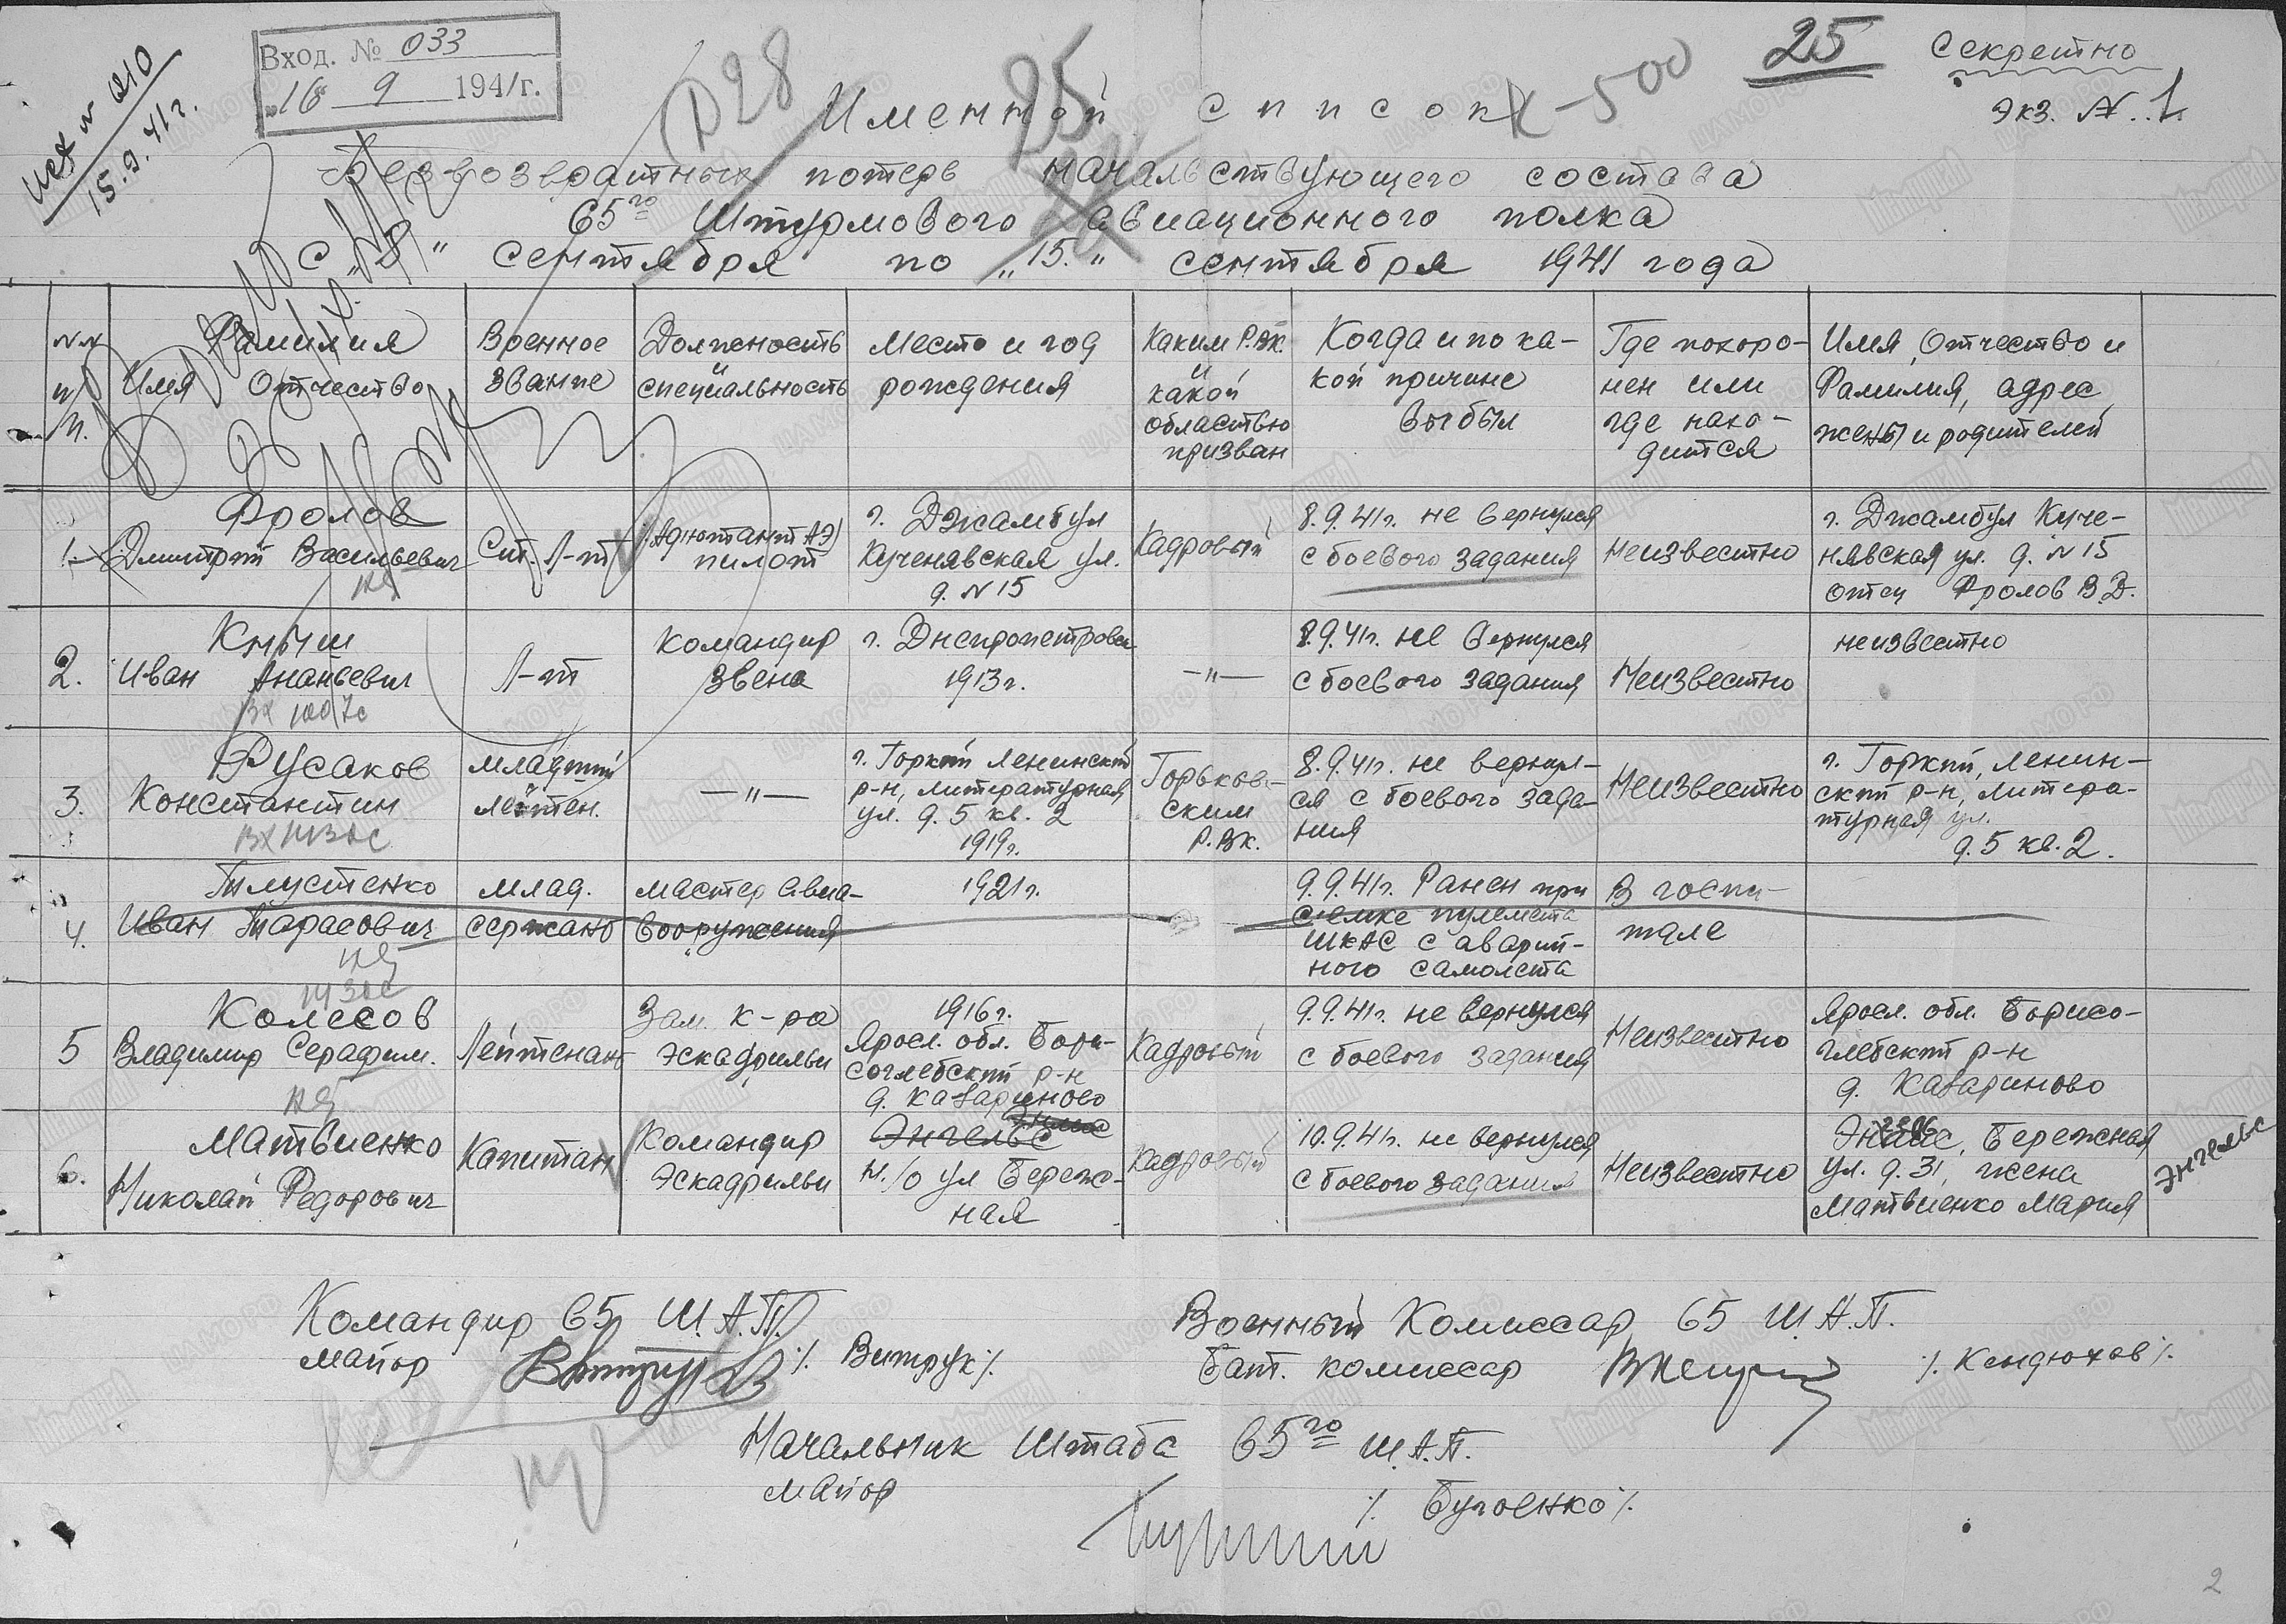 Вход. № 033
„16 9 1941г.
исх № 010
15.9.41г.
25
Секретно
Экз. № 1
Д28
25
-500
Именной список
безвозвратных потерь начальствующего состава
65го Штурмового авиационного полка
с „8“ сентября по „15.“ сентября 1941 года
№№
п/п.
Фамилия
Имя Отчество
Военное
звание
Должность
и
специальность
Место и год
рождения
Каким Р.ВК.
и
какой
областью
призван
Когда и по ка-
кой причине
выбыл
Где похоро-
нен или
где нахо-
дится
Имя, Отчество и
Фамилия, адрес
жены и родителей
1.
Фролов
Дмитрий Васильевич
Ст. Л-т
Адютант АЭ
пилот
г. Джамбул
Кученявская ул.
д. №15
Кадровый
8.9.41г. не вернулся
с боевого задания
Неизвестно
г. Джамбул Куче-
нявская ул. д. №15
отец Фролов В.Д.
2.
Кныш
Иван Ананьевич
Л-т
Командир
звена
г. Днепропетровск
1913г.
—"—
8.9.41г. не вернулся
с боевого задания
Неизвестно
неизвестно
3.
Русаков
Константин
младший
лейтен.
—"—
г. Горкий Ленинский
р-н, литературная
ул. д. 5 кв. 2
1919г.
Горьков-
ским
Р.ВК.
8.9.41г. не вернул-
ся с боевого зада-
ния
Неизвестно
г. Горкий, Ленин-
ский р-н, литера-
турная ул.
д. 5 кв. 2.
4.
Тлустенко
Иван Тарасович
млад.
сержант
мастер авиа-
вооружения
1921г.
9.9.41г. Ранен при
съемке пулемета
ШКАС с аварий-
ного самолета
В госпи-
тале
5
Колесов
Владимир Серафим.
Лейтенант
Зам. к-ра
эскадрильи
1916г.
Яросл. обл. Бори-
соглебский р-н
д. Кавариново
Кадровый
9.9.41г. не вернулся
с боевого задания
Неизвестно
Яросл. обл. Борисо-
глебский р-н
д. Кавариново
6.
Матвиенко
Николай Федорович
Капитан
Командир
Эскадрильи
Энгельс
н./о ул Береж-
ная
Кадровый
10.9.41г. не вернулся
с боевого задания
Неизвестно
Бережная
ул. д. 31, жена
Матвиенко Мария
Энгельс
Командир 65 Ш.А.П.
майор /. Витрук /.
Военный Комиссар 65 Ш.А.П.
Бат. комиссар /. Кендюхов /.
Начальник Штаба 65го Ш.А.П.
майор
/. Бугоенко /.
2